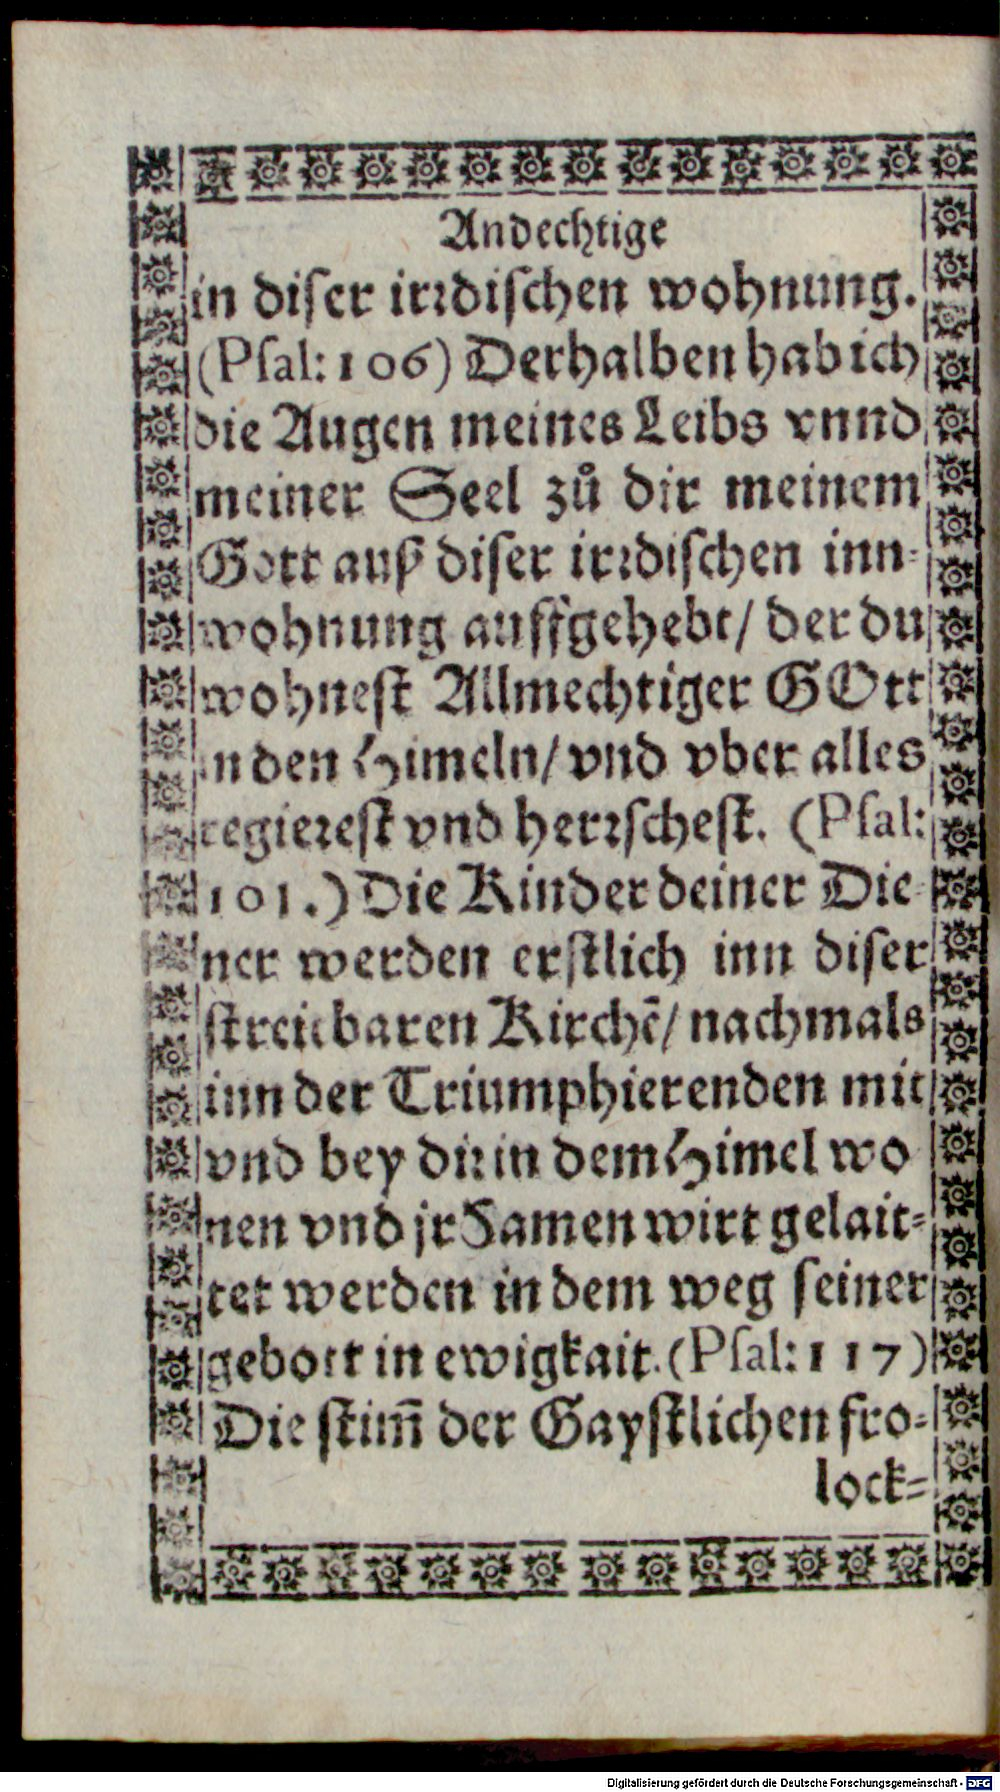 Andechtige
in diser irꝛdischen wohnung.
(Psal: 106) Derhalben hab ich
die Augen meines Leibs vnnd
meiner Seel zů dir meinem
Gott auß diser irꝛdischen inn-
wohnung auffgehebt/ der du
wohnest Allmechtiger GOtt
in den Himeln/ vnd vber alles
regierest vnd herꝛschest. (Psal:
101.) Die Kinder deiner Die-
ner werden erstlich inn diser
streitbaren Kirchẽ/ nachmals
inn der Triumphierenden mit
vnd bey dir in dem Himel wo
nen vnd jr Samen wirt gelait-
tet werden in dem weg seiner
gebott in ewigkait. (Psal: 117)
Die stim̃ der Gaystlichen fro-
lock-
Digitalisierung gefördert durch die Deutsche Forschungsgemeinschaft - DFG